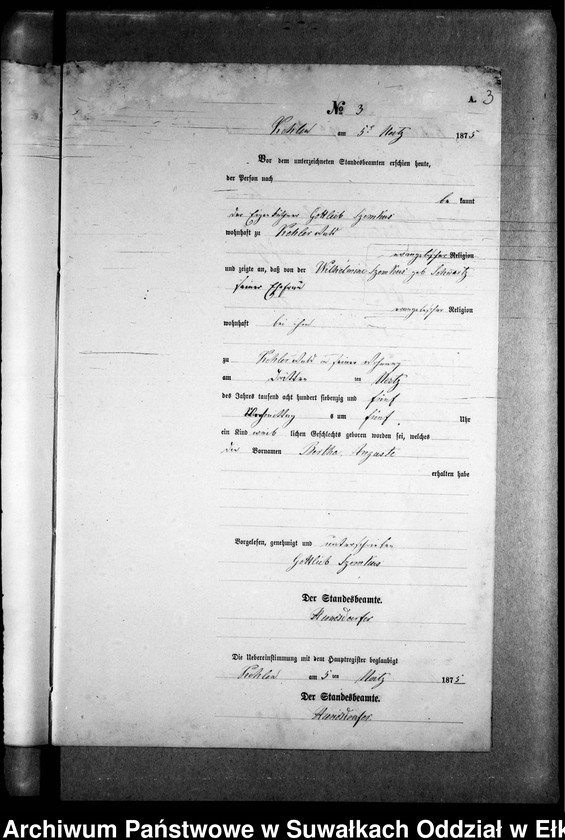 A. 3
№ 3
am 5t März 1875
Vor dem unterzeichneten Standesbeamten erschien heute,
der Person nach
be kannt
der Eigenkäthner Gottlieb
wohnhaft zu
evangelischer Religion
und zeigte an, daß von der Wilhelmine geb.
seiner Ehefrau
evangelischer Religion
wohnhaft bei ihm
zu in seiner Wohnung
am dritten ten März
des Jahres tausend acht hundert siebenzig und fünf
Nachmittag s um fünf Uhr
ein Kind weib lichen Geschlechts geboren worden sei, welches
die Vornamen Bertha Auguste
erhalten habe
Vorgelesen, genehmigt und unterschrieben
Gottlieb
Der Standesbeamte.
Die Uebereinstimmung mit dem Hauptregister beglaubigt
am 5 ten März 1875
Der Standesbeamte.
Archiwum Państwowe w Suwałkach Oddział w Ełk